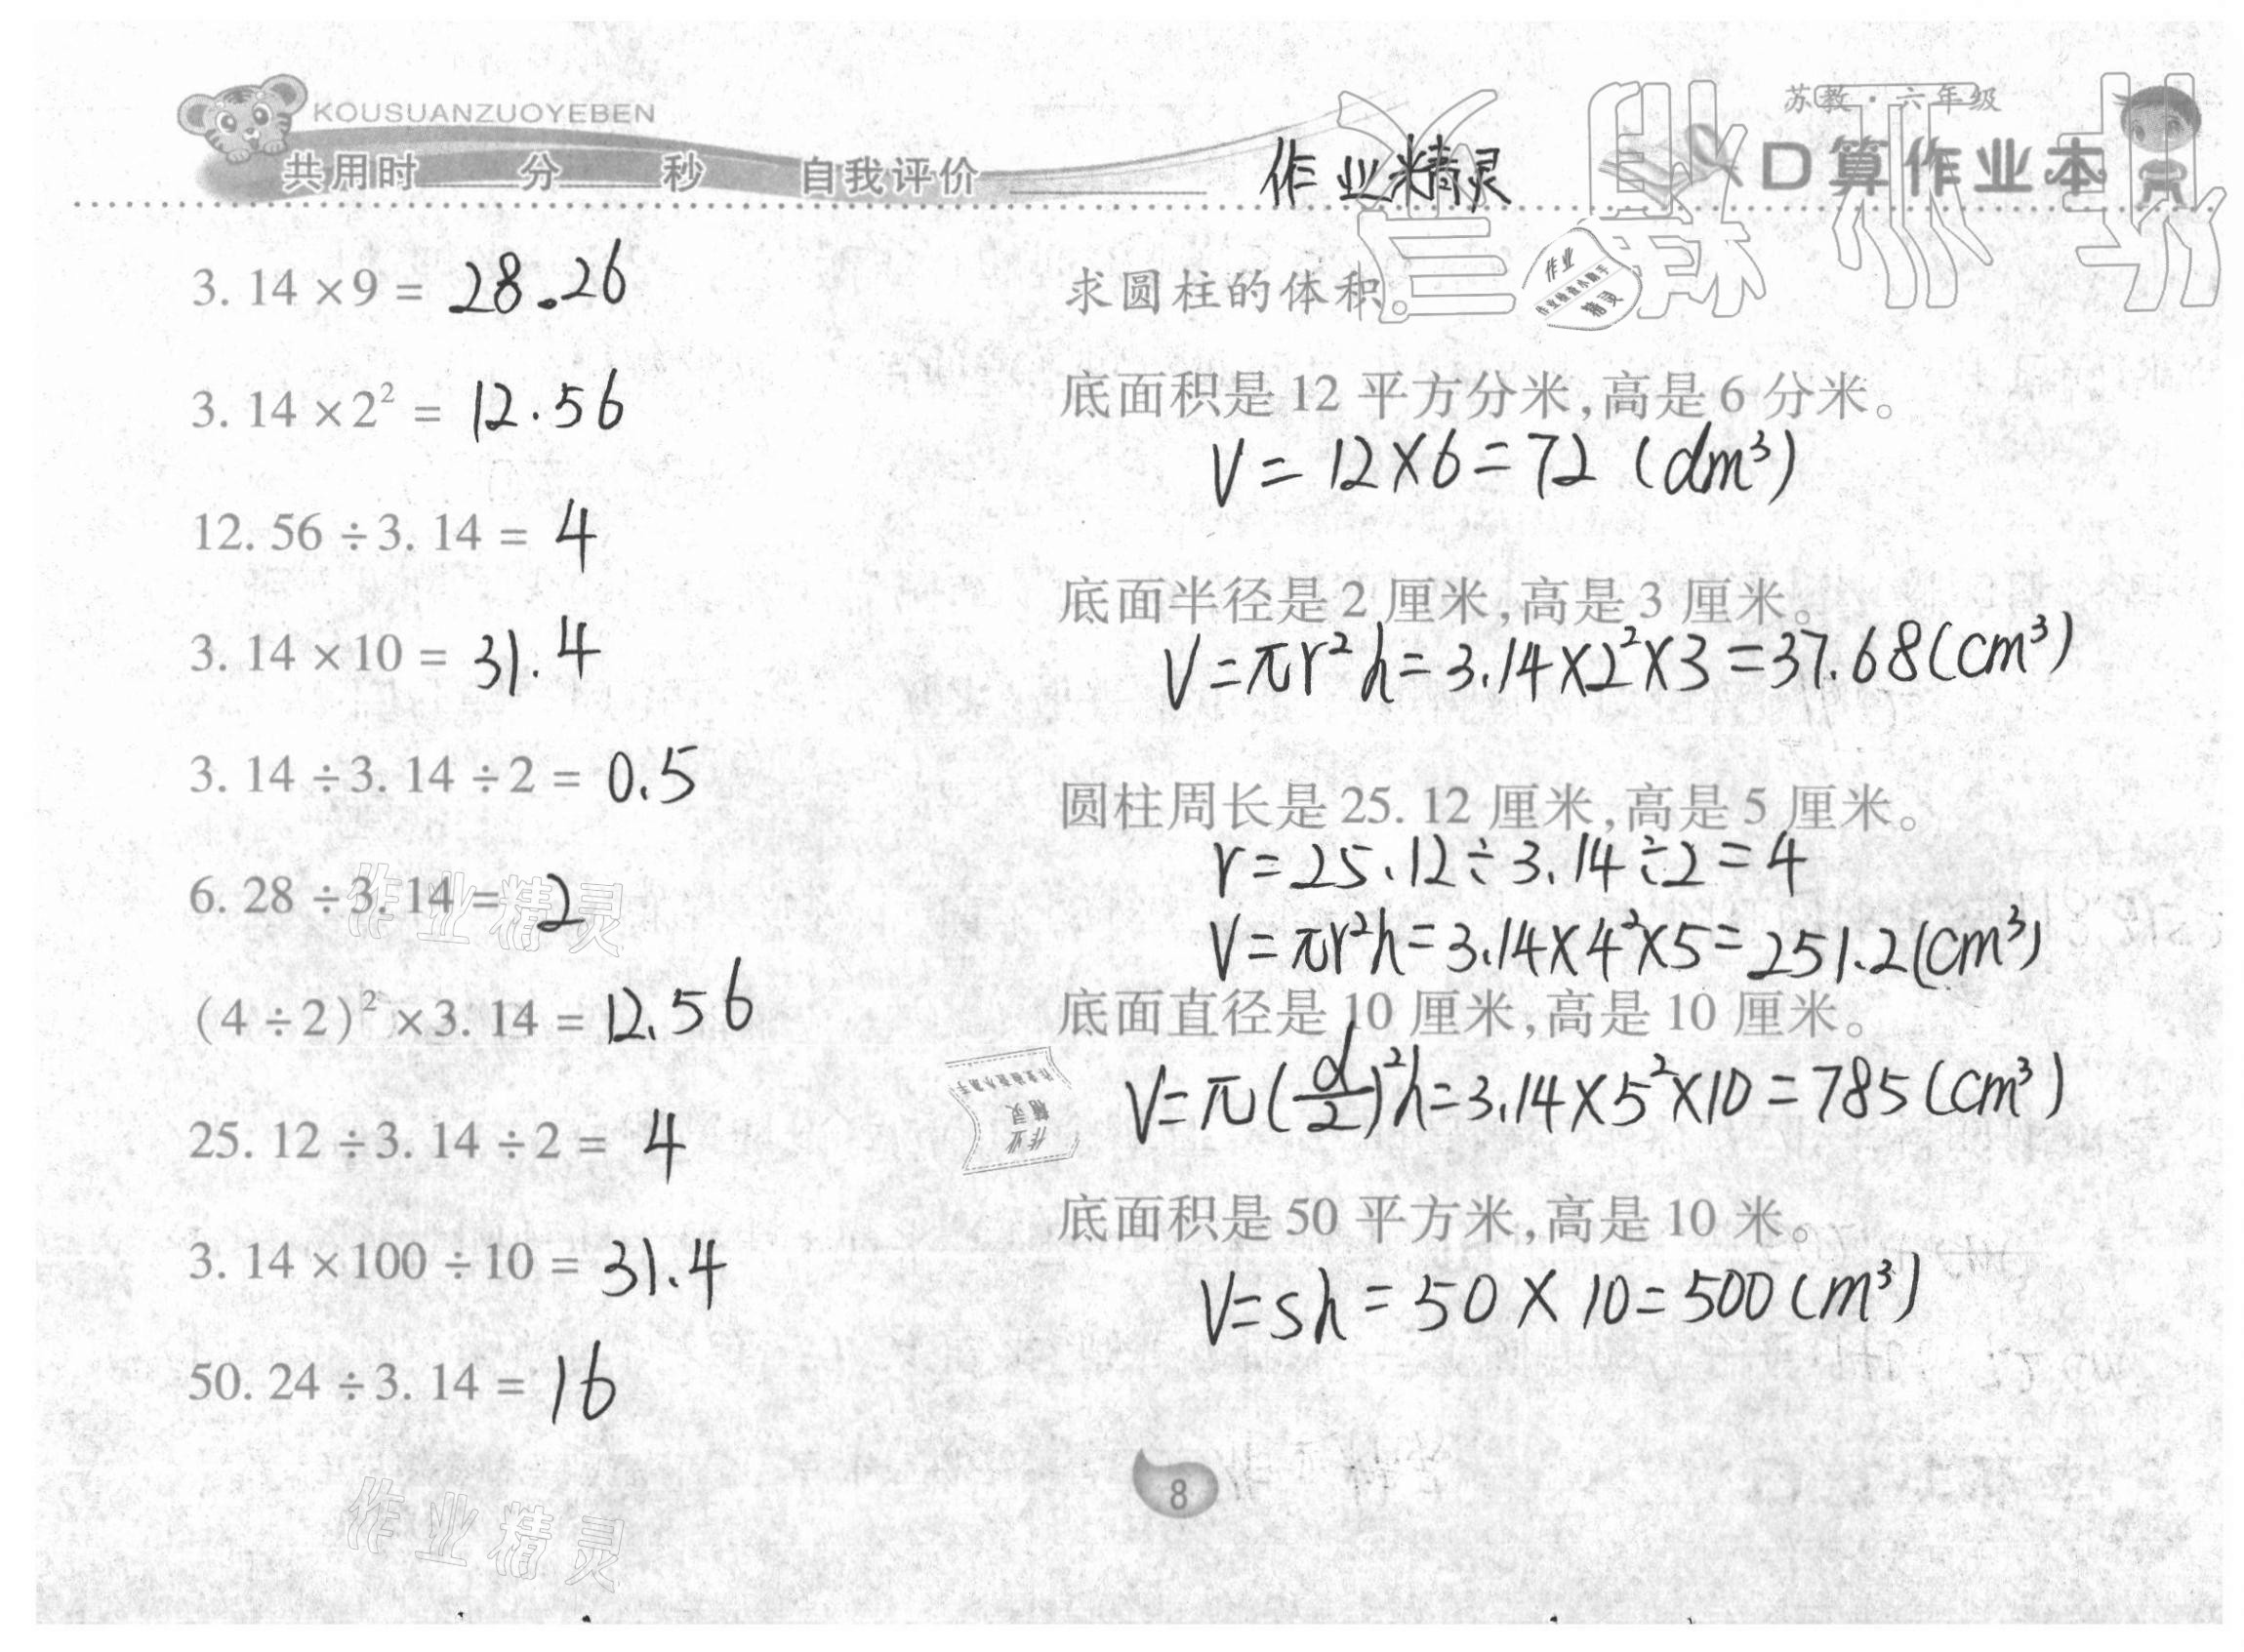 KOUSUANZUOYEBEN
苏教·六年级
共用时____分____秒 自我评价________
作业精灵
口算作业本
3.14×9=28.26
3.14×2²=12.56
12.56÷3.14=4
3.14×10=31.4
3.14÷3.14÷2=0.5
6.28÷3.14=2
(4÷2)²×3.14=12.56
25.12÷3.14÷2=4
3.14×100÷10=31.4
50.24÷3.14=16
求圆柱的体积。
底面积是12平方分米,高是6分米。
V=12×6=72(dm³)
底面半径是2厘米,高是3厘米。
V=πr²h=3.14×2²×3=37.68(cm³)
圆柱周长是25.12厘米,高是5厘米。
r=25.12÷3.14÷2=4
V=πr²h=3.14×4²×5=251.2(cm³)
底面直径是10厘米,高是10厘米。
V=π(d/2)²h=3.14×5²×10=785(cm³)
底面积是50平方米,高是10米。
V=sh=50×10=500(m³)
8
作业精灵
作业精灵
作业
精灵
作业
精灵